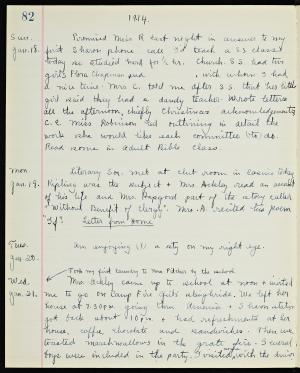 82
1914.
Sun. Promised Miss R last night in answer to my
Jan. 18. first Sharon phone call I'd teach a S.S. class
today so studied next for ½ hr. Church. S.S. had two
girls Flora Chapman and , with whom I had
a nice time. Mrs C. told me after S.S. that her little
girl said they had a dandy teacher. Wrote letters
all the afternoon, chiefly Christmas acknowledgments
C.E. Miss Robinson led outlining in detail the
work she would like each committee to do.
Read some in Adult Bible Class.
Mon. Literary Soc. met at club room in casino today
Jan. 19. Kipling was the subject & Mrs. Ackley read an account
of his life and Mrs. Hapgood part of the story called
"Without Benefit of Clergy". Mrs. A. recited his poem
"If". Letter from home
Tues. Am enjoying (!) a sty on my right eye.
Jan. 20.
Took my first laundry to Mrs. by the school
Wed. Mrs. Ackley came up to school at noon & invited
Jan. 21. me to go on Camp Fire Girls' sleighride. We left her
house at 7:30 P.M. going then & have
got back about 10 P.M. & had refreshments at her
house, coffee, chocolate and sandwiches. Then we
toasted marshmallows in the grate fire. Several
boys were included in the party. I visited with the